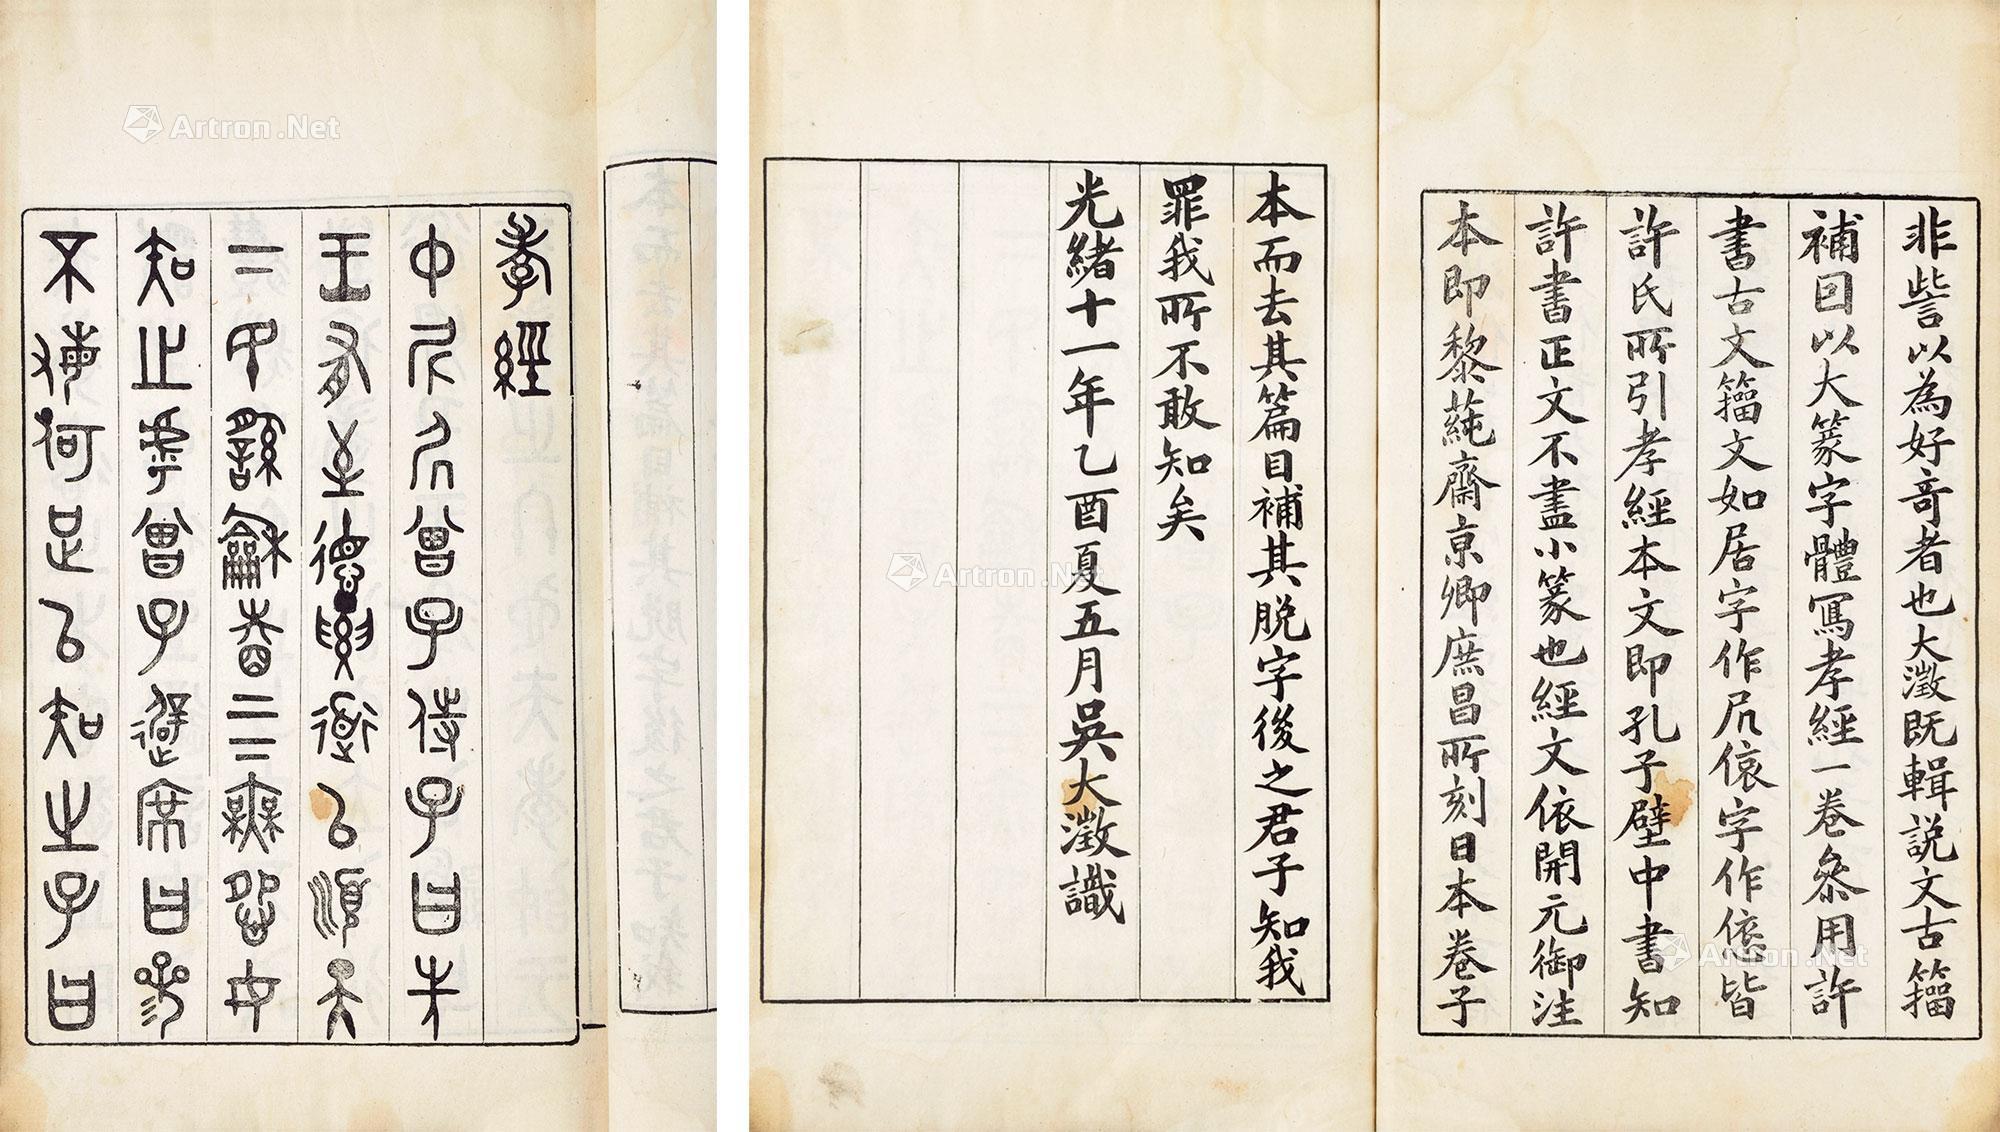 非訾以為好奇者也大澂既輯說文古籀
補回以大篆字體寫孝經一卷叅用許
書古文籀文如居字作凥偯字作㥋皆
許氏所引孝經本文即孔子壁中書知
許書正文不盡小篆也經文依開元御注
本即黎蒓齋京卿庶昌所刻日本卷子
本而去其篇目補其脫字後之君子知我
罪我所不敢知矣
光緒十一年乙酉夏五月吳大澂識
孝經
中尼凥曾子侍子曰先
王有至德要道以順天
下民用龢睦上下無怨女
知之乎曾子避席曰參
不敏何足以知之子曰
Artron.Net
Artron.Net
Artron.Net